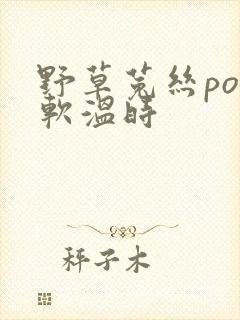 野草菟丝po
软温時
秤子木